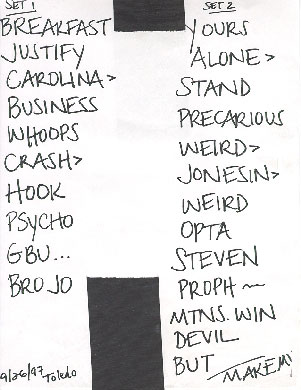 SET 1
BREAKFAST
JUSTIFY
CAROLINA>
BUSINESS
WHOOPS
CRASH>
HOOK
PSYCHO
GBU...
BROJO
9/26/97 Toledo
SET 2
YOURS
ALONE>
STAND
PRECARIOUS
WEIRD>
JONESIN>
WEIRD
OPTA
STEVEN
PROPH~
MTNS. WIN
DEVIL
BUT MAKE MY